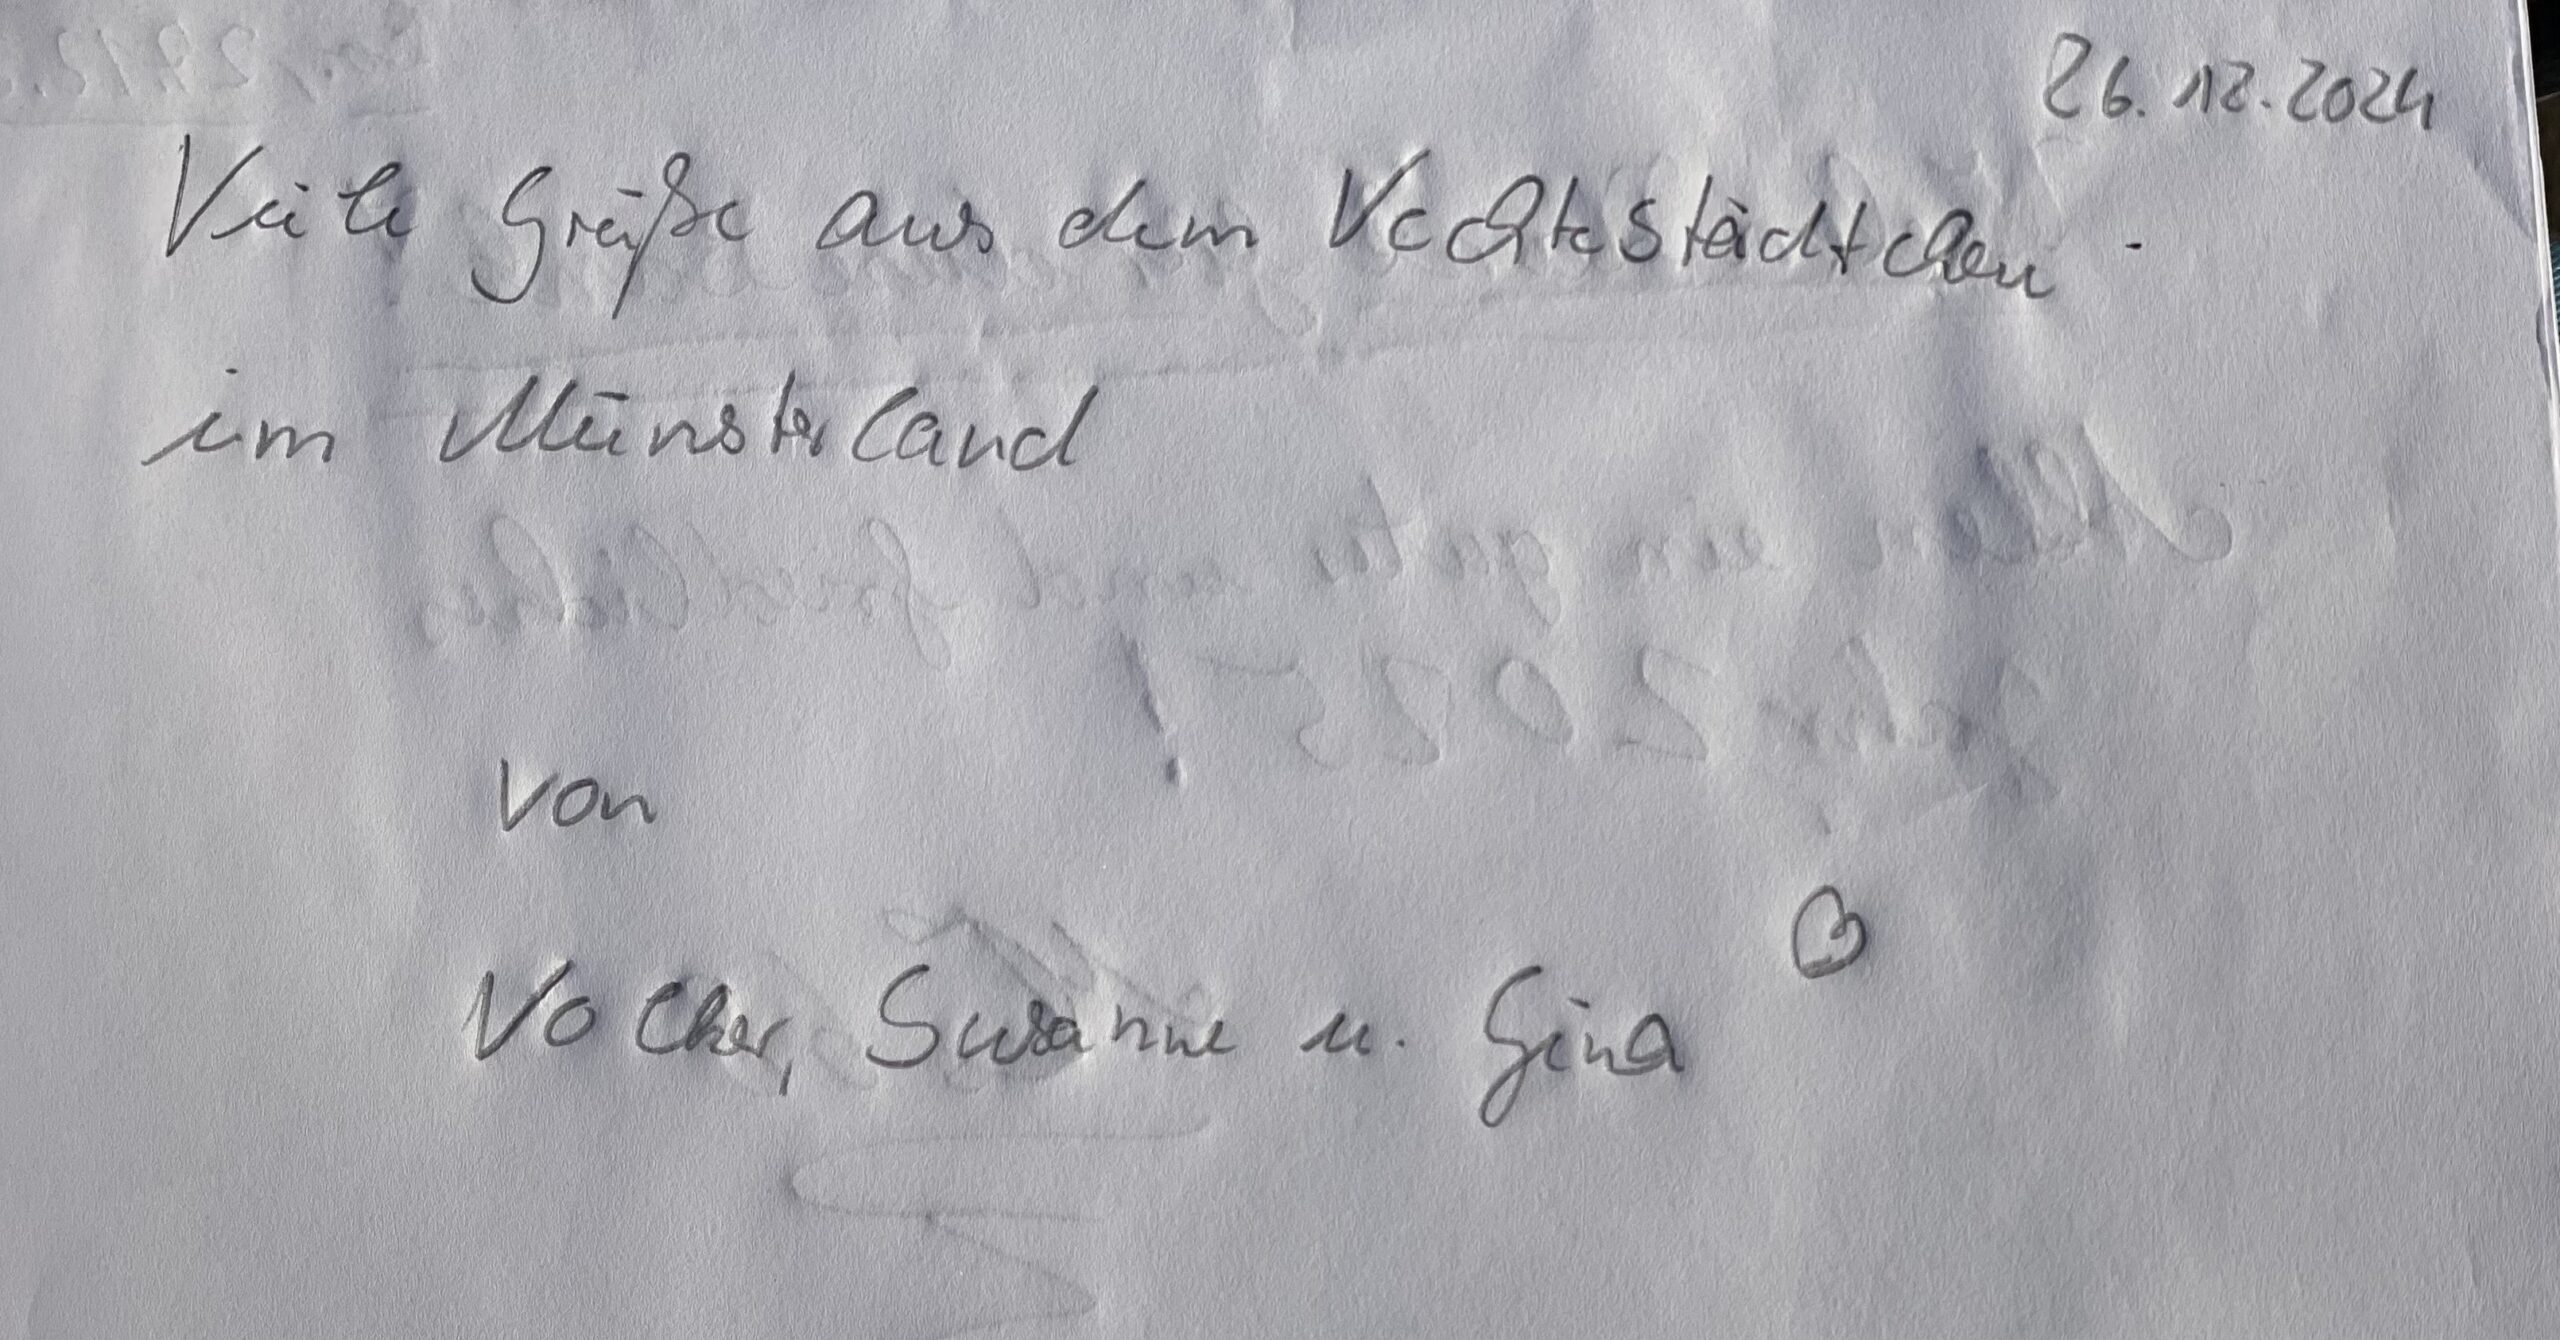 26.12.2024
Viele Grüße aus dem Vechtestädtchen -
im Münsterland
von
Volker, Susanne u. Gina